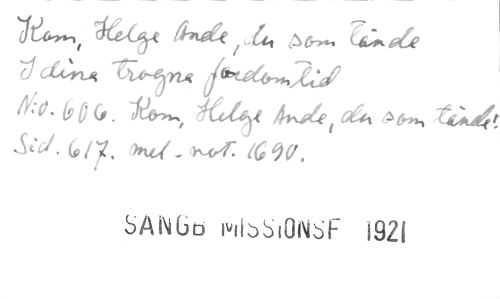 Kom, Helge Ande, du som tände
I dina trogna fordomtid
N:o. 606. Kom, Helge Ande, du som tände!
Sid. 617. mel-not. 1690.
SANGB MISSIONSF 1921